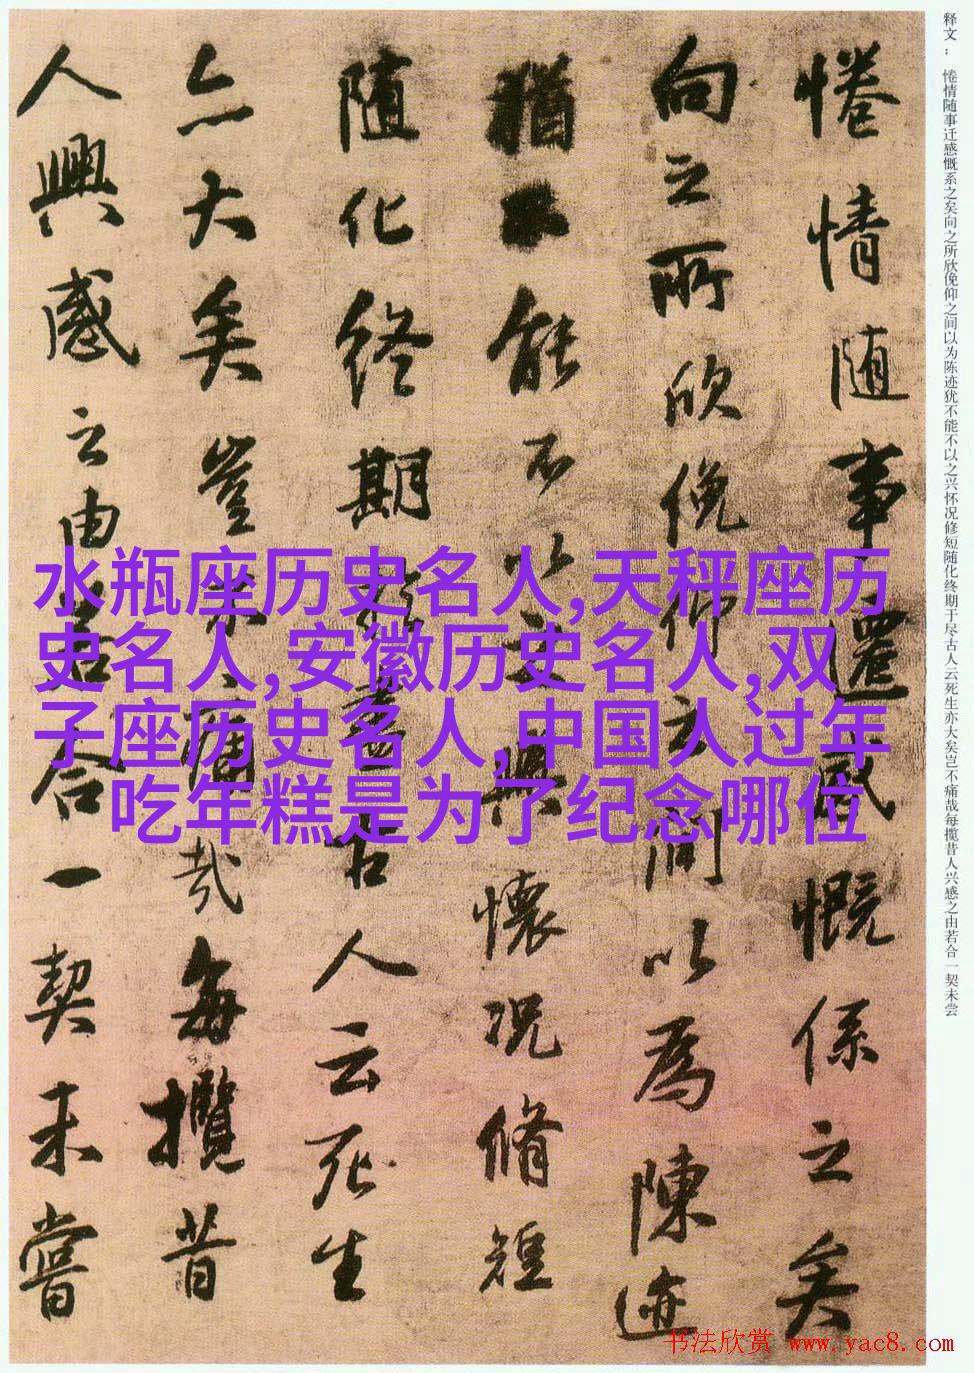 释文：惓情随事迁感慨系之矣向之所欣俛仰之间以为陈迹犹不能不以之兴怀况修短随化终期于尽古人云死生亦大矣岂不痛哉每揽昔人兴感之由若合一契未尝
惓情随事遷感慨係之矣
向之所欣俛仰之間以為陳迹
猶不能不以之興懷況脩短
随化終期於盡古人云死生
亦大矣豈不痛哉每攬昔
人興感之由若合一契未嘗
水瓶座历史名人,天秤座历
史名人,安徽历史名人,双
子座历史名人,中国人过年
吃年糕是为了纪念哪位
书法欣赏 www.yac8.com